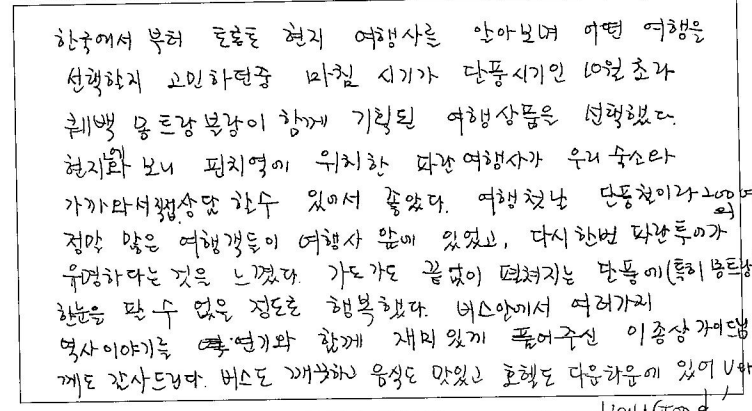 한국에서 부터 토론토 현지 여행사를 알아보며 어떤 여행을
선택할지 고민하던중 마침 시기가 단풍시기인 10월초라
퀘백 몽트랑블랑이 함께 기획된 여행상품을 선택했다.
현지에와 보니 핀치역에 위치한 파란여행사가 우리 숙소와
가까와서 직접상담 할수 있어서 좋았다. 여행첫날 단풍철이라 200여
정말 많은 여행객들이 여행사 앞에 있었고, 다시한번 파란투어가
유명하다는 것을 느꼈다. 가도가도 끝없이 펼쳐지는 단풍에(특히 몽트랑
한눈을 팔 수 없을 정도로 행복했다. 버스안에서 여러가지
역사이야기를 연기와 함께 재미있게 풀어주신 이종상 가이드님
께도 감사드린다. 버스도 깨끗하고 음식도 맛있고 호텔도 다운타운에 있어